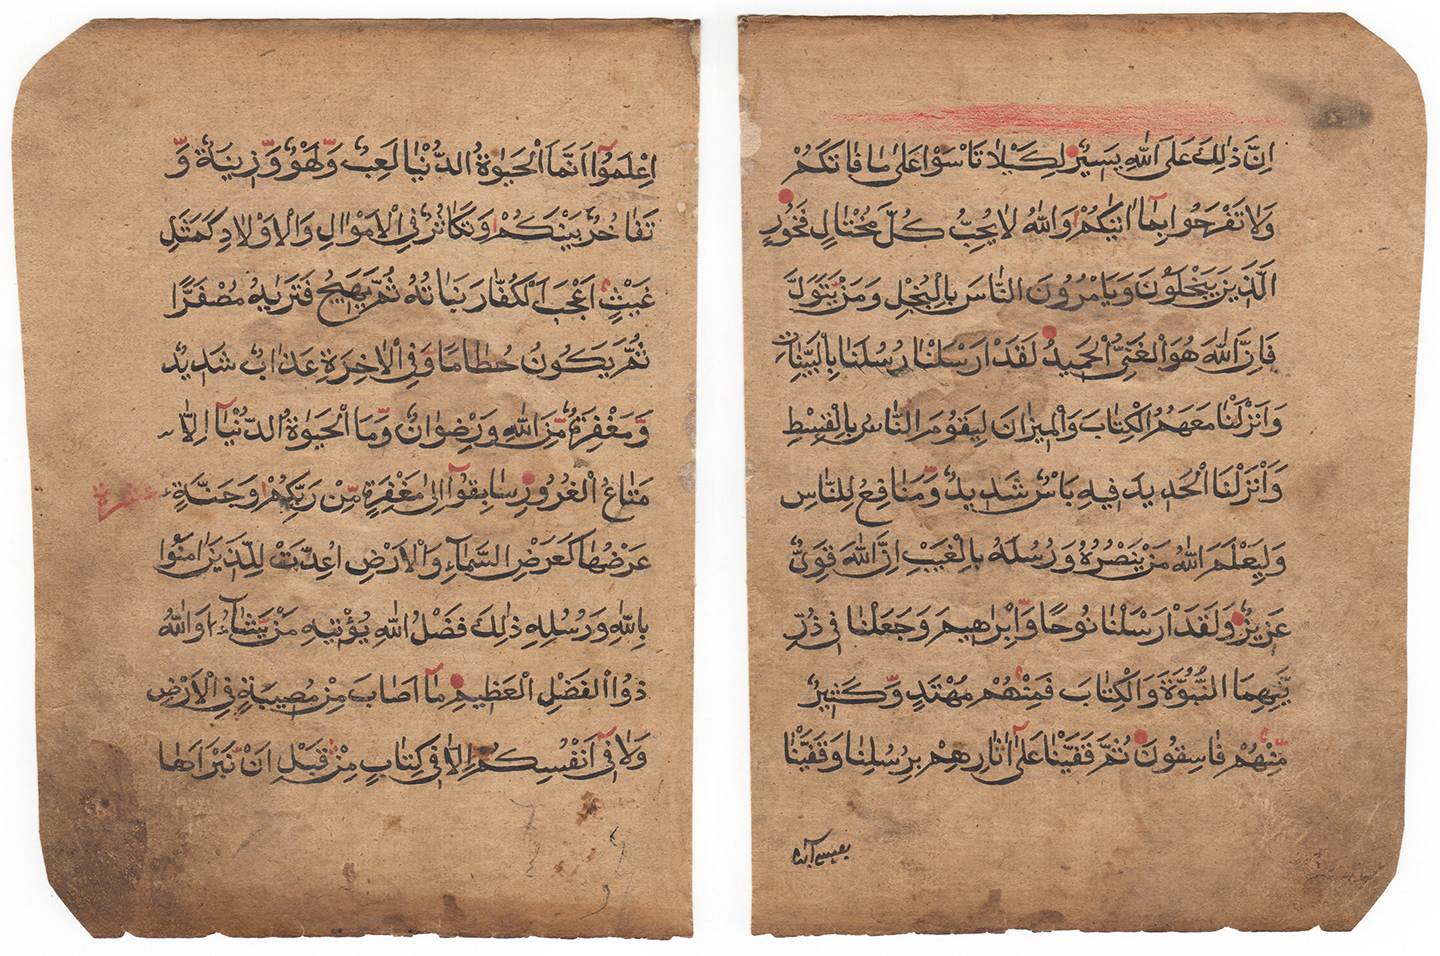 اِعْلَمُوْٓا اَنَّمَا الْحَيٰوةُ الدُّنْيَا لَعِبٌ وَّلَهْوٌ وَّزِيْنَةٌ وَّ
تَفَاخُرٌ بَيْنَكُمْ وَتَكَاثُرٌ فِي الْاَمْوَالِ وَالْاَوْلَادِ كَمَثَلِ
غَيْثٍ اَعْجَبَ الْكُفَّارَ نَبَاتُهُ ثُمَّ يَهِيْجُ فَتَرٰيهُ مُصْفَرًّا
ثُمَّ يَكُوْنُ حُطَامًا وَّفِي الْاٰخِرَةِ عَذَابٌ شَدِيْدٌ
وَّمَغْفِرَةٌ مِّنَ اللّٰهِ وَرِضْوَانٌ وَّمَا الْحَيٰوةُ الدُّنْيَآ اِلَّا
مَتَاعُ الْغُرُوْرِ سَابِقُوْٓا اِلٰى مَغْفِرَةٍ مِّنْ رَبِّكُمْ وَجَنَّةٍ
عشرة
عَرْضُهَا كَعَرْضِ السَّمَآءِ وَالْاَرْضِ اُعِدَّتْ لِلَّذِيْنَ اٰمَنُوْا
بِاللّٰهِ وَرُسُلِهٖ ذٰلِكَ فَضْلُ اللّٰهِ يُؤْتِيْهِ مَنْ يَّشَآءُ وَاللّٰهُ
ذُوا الْفَضْلِ الْعَظِيْمِ مَآ اَصَابَ مِنْ مُصِيْبَةٍ فِي الْاَرْضِ
وَلَا فِيْٓ اَنْفُسِكُمْ اِلَّا فِيْ كِتَابٍ مِنْ قَبْلِ اَنْ نَبْرَاَهَا
اِنَّ ذٰلِكَ عَلَى اللّٰهِ يَسِيْرٌ لِكَيْلَا تَاْسَوْا عَلٰى مَا فَاتَكُمْ
وَلَا تَفْرَحُوْا بِمَآ اٰتٰيكُمْ وَاللّٰهُ لَا يُحِبُّ كُلَّ مُخْتَالٍ فَخُوْرٍ
الَّذِيْنَ يَبْخَلُوْنَ وَيَاْمُرُوْنَ النَّاسَ بِالْبُخْلِ وَمَنْ يَّتَوَلَّ
فَاِنَّ اللّٰهَ هُوَ الْغَنِيُّ الْحَمِيْدُ لَقَدْ اَرْسَلْنَا رُسُلَنَا بِالْبَيِّنَاتِ
وَاَنْزَلْنَا مَعَهُمُ الْكِتَابَ وَالْمِيْزَانَ لِيَقُوْمَ النَّاسُ بِالْقِسْطِ
وَاَنْزَلْنَا الْحَدِيْدَ فِيْهِ بَاْسٌ شَدِيْدٌ وَّمَنَافِعُ لِلنَّاسِ
وَلِيَعْلَمَ اللّٰهُ مَنْ يَنْصُرُهُ وَرُسُلَهُ بِالْغَيْبِ اِنَّ اللّٰهَ قَوِيٌّ
عَزِيْزٌ وَلَقَدْ اَرْسَلْنَا نُوْحًا وَّاِبْرَاهِيْمَ وَجَعَلْنَا فِيْ ذُرِّ
يَّتِهِمَا النُّبُوَّةَ وَالْكِتَابَ فَمِنْهُمْ مُهْتَدٍ وَّكَثِيْرٌ
مِّنْهُمْ فَاسِقُوْنَ ثُمَّ قَفَّيْنَا عَلٰٓى اٰثَارِهِمْ بِرُسُلِنَا وَقَفَّيْنَا
بعيسى ابن